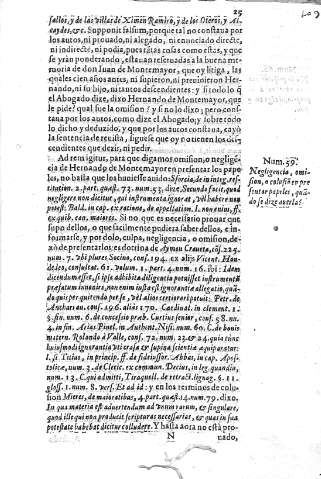 25
fallos, y de las villas de Ximen Ramirò, y de los Oteros, y Al-
caydes, &c. Supponit falsum, porque tal no consta ua por
los autos, ni prouado, ni alegado, ni enunciado directè,
ni indirectè, ni podia, pues tātas cosas como estas, y que
se yrán ponderando, estauan reseruadas a la buena me-
moria de don Iuan de Montemayor, que oy litiga, las
quales cien años antes, ni supieron, ni preuinieron Her-
nando, ni su hijo, ni tantos descendientes: y si todo lo q̃
el Abogado dize, dixo Hernando de Montemayor, que
le pide? qual fue la omision? y si no lo dixo; pero cons-
taua por los autos, como dize el Abogado; y sobre todo
lo dicho y deduzido, y que por los autos constaua, cayó
la sentencia de reuista, siguese que oy no tienen los des-
cendientes que dezir, ni pedir.
Ad rem igitur, para que digamos omision, o negligē-
cia de Hernando de Montemayor en presentar los pape
les, no basta que los huuiesse auido: Sforcia, de in integ. res-
titution. 2. part. quæst. 73. num. 53, dize, Secundo facit, quod
negligere non dicitur, qui instrumenta ignorat, vel habere non
potest: Bald. in cap. ex ratione, de appellation. l. non enim, ff.
ex quib. cau. maiores. Si no que es necessario prouar que
supo dellos, o que facilmente pudiera saber dellos, e in-
formarse, y por dolo, culpa, negligencia, o omision, de-
xò de presentarlos, es doctrina de Aymon Craueta, cōs. 225.
num. 7. vbi plures Socino, cons. 194. ex alijs Vicent. Hon-
deleo, consultat. 61. volum. 1. part. 4. num. 16. ibi: Idem
dicendum esset, si ipse adhibita diligentia potuisset instrumentū
præsatum inuenire, non enim iusta est ignorantiæ allegatio, quā-
do quis per quitendo per se, vel alios certiorari potuit: Petr. de
Ancharan. cons. 196. alias 170. Cardinal. in clement. 1.
§. fin. num. 6. de concesio præb. Curtius senior, cons. 58. nu.
4. in fin. Arias Pinel, in Authent. Nisi. num. 60. C. de bonis
mater. Rolando à Valle, cons. 72. num. 23. & 24. quia hinc
huiusmodi ignorantia vti crasa & supina scientiæ æquiparatur:
l. si Titius, in princip. ff. de fideiussor. Abbas, in cap. Apos-
tolicæ, num. 3. de Cleric. excommun. Decius, in leg. quandiu,
num. 13. C. qui admitti, Tiraquell. de retract. lignag. §. 11.
gloss. 1. num. 8. vers. Et ad id: y en los terminos de colu-
sion Mieres, de maioratibus, 4. part. quæst. 14. num. 79. dixo,
In qua materia est aduertendum ad vnum rarum, & singulare,
quod ille qui non producit scripturas necessarias, & quas in sua
potestate habebat dicitur colludere. Y hasta aora no está pro-
N
uado,
Num. 59.
Negligencia, omi-
sion, o colusiō en pre
sentar papeles, quā-
do se dize auerla?